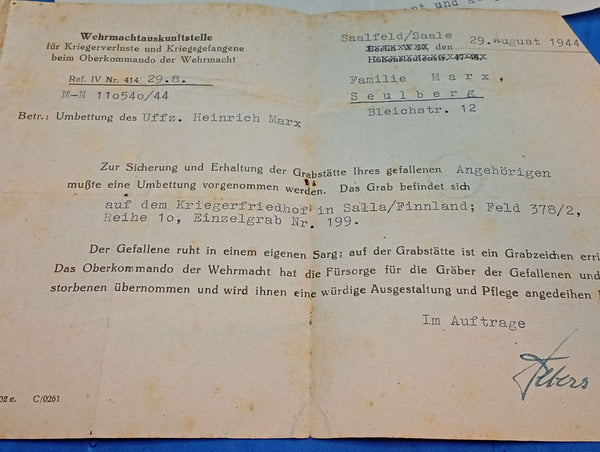 Wehrmachtauskunftstelle
für Kriegerverluste und Kriegsgefangene
beim Oberkommando der Wehrmacht
Ref. IV Nr. 414/ 29.8.
M-N 11o54o/44
Saalfeld/Saale
den 29. August 1944
Familie Marx,
Seulberg
Bleichstr. 12
Betr.: Umbettung des Uffz. Heinrich Marx
Zur Sicherung und Erhaltung der Grabstätte Ihres gefallenen Angehörigen
mußte eine Umbettung vorgenommen werden. Das Grab befindet sich
auf dem Kriegerfriedhof in Salla/Finnland; Feld 378/2,
Reihe 1o, Einzelgrab Nr. 199.
Der Gefallene ruht in einem eigenen Sarg; auf der Grabstätte ist ein Grabzeichen erri
Das Oberkommando der Wehrmacht hat die Fürsorge für die Gräber der Gefallenen und
storbenen übernommen und wird ihnen eine würdige Ausgestaltung und Pflege angedeihen
Im Auftrage
02 e. C/0261